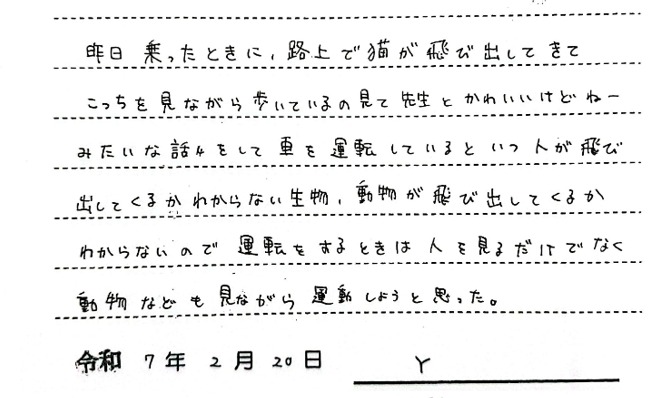 昨日 乗ったときに、路上で猫が飛び出してきて
こっちを見ながら歩いているの見て先生とかわいいけどねー
みたいな話々をして車を運転しているといつ人が飛び
出してくるかわからない生物、動物が飛び出してくるか
わからないので運転をするときは人を見るだけでなく
動物なども見ながら運動しようと思った。
令和 7年 2月 20日 Y